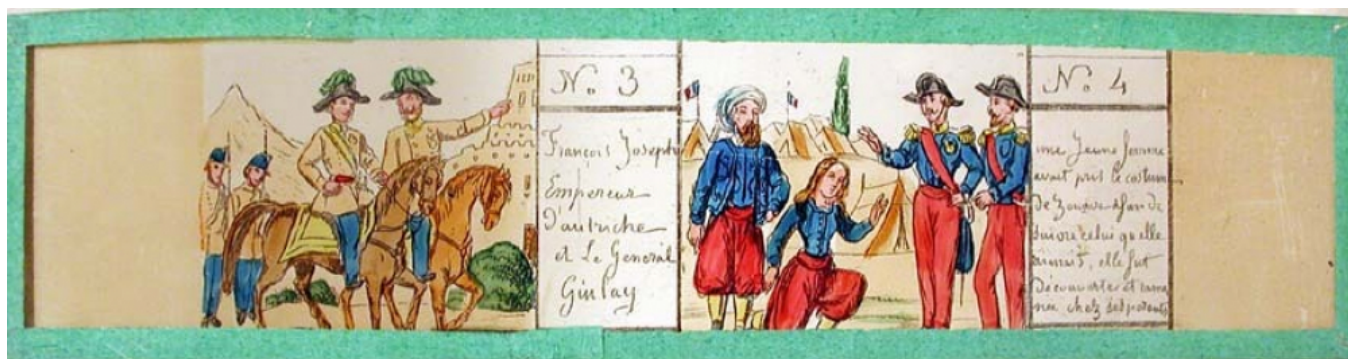 No. 3
François Joseph
Empereur
d'autriche
et Le General
Giulay
No. 4
une Jeune femme
avait pris le costum
De Zouave Afin de
Suivre celui qu'elle
aimait, elle fut
Découverte et rame
née chez ses parents